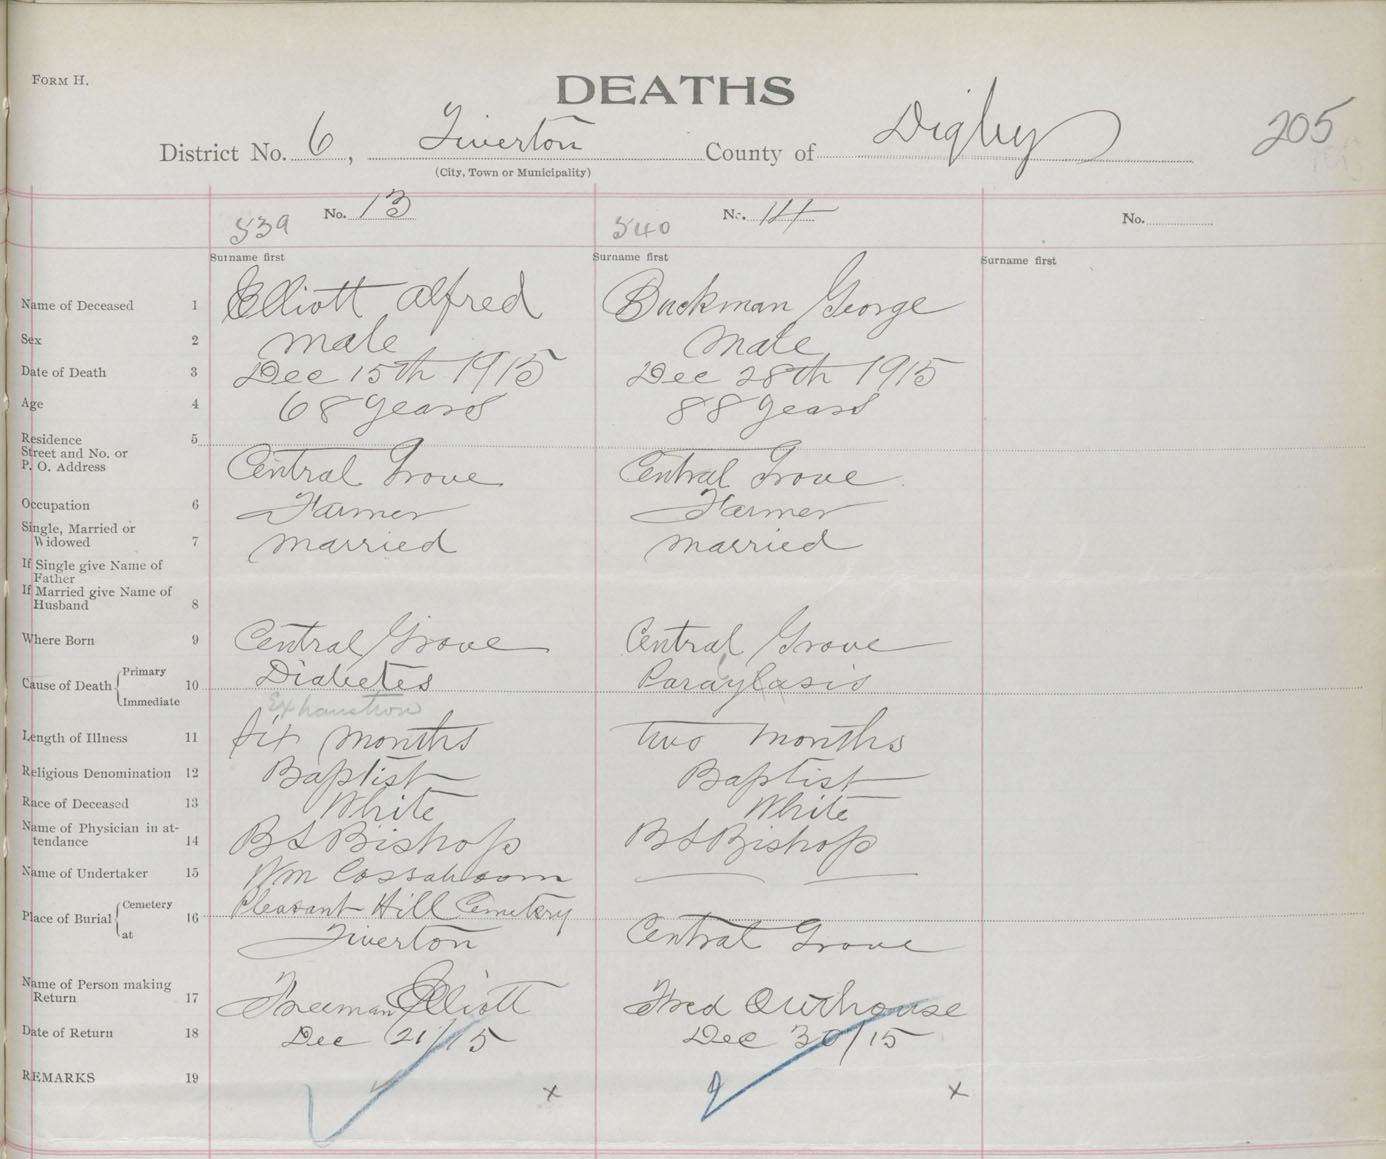 FORM H.
DEATHS
205
District No. 6, Tiverton County of Digby
(City, Town or Municipality)
No. 13 No. 14 No.
539 540
Surname first Surname first Surname first
Name of Deceased 1 Elliott Alfred Buckman George
Sex 2 male Male
Date of Death 3 Dec 15th 1915 Dec 28th 1915
Age 4 68 years 88 years
Residence 5
Street and No. or
P. O. Address Central Grove Central Grove
Occupation 6 Farmer Farmer
Single, Married or
Widowed 7 Married married
If Single give Name of
Father
If Married give Name of
Husband 8
Where Born 9 Central Grove Central Grove
Cause of Death Primary 10 Diabetes Paraylasis
Immediate Exhaustion
Length of Illness 11 Six Months two months
Religious Denomination 12 Baptist Baptist
Race of Deceased 13 White White
Name of Physician in at-
tendance 14 B S Bishop B S Bishop
Name of Undertaker 15 Wm Cossaboom
Place of Burial Cemetery 16 Pleasant Hill Cemetery
at Tiverton Central Grove
Name of Person making
Return 17 Freeman Elliott Fred Outhouse
Date of Return 18 Dec 21/15 Dec 30/15
REMARKS 19 x x